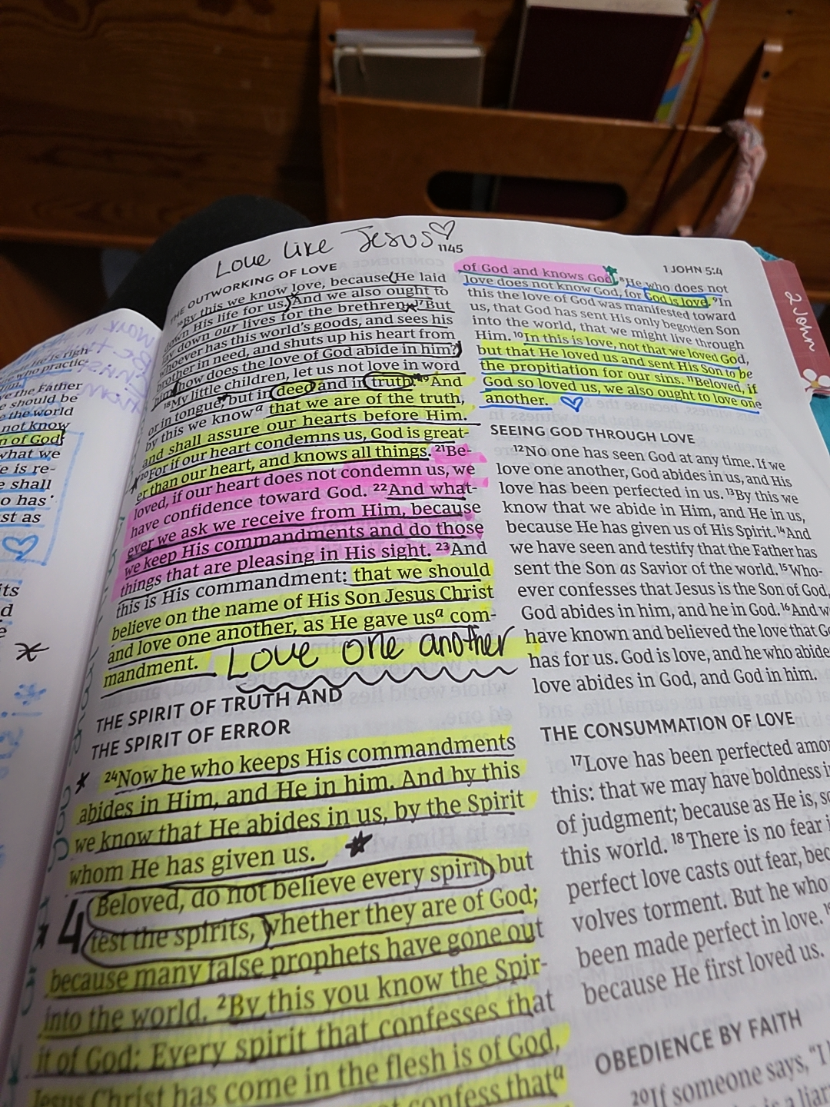 Love like Jesus ♡
1145
1 JOHN 5:4
2 John
THE OUTWORKING OF LOVE
¹⁶By this we know love, because He laid
down His life for us. And we also ought to
lay down our lives for the brethren. ¹⁷But
whoever has this world's goods, and sees his
brother in need, and shuts up his heart from
him, how does the love of God abide in him?
¹⁸My little children, let us not love in word
or in tongue, but in deed and in truth. ¹⁹And
by this we knowᵃ that we are of the truth,
and shall assure our hearts before Him.
²⁰For if our heart condemns us, God is great-
er than our heart, and knows all things. ²¹Be-
loved, if our heart does not condemn us, we
have confidence toward God. ²²And what-
ever we ask we receive from Him, because
we keep His commandments and do those
things that are pleasing in His sight. ²³And
this is His commandment: that we should
believe on the name of His Son Jesus Christ
and love one another, as He gave usᵃ com-
mandment.
Love one another
THE SPIRIT OF TRUTH AND
THE SPIRIT OF ERROR
²⁴Now he who keeps His commandments
abides in Him, and He in him. And by this
we know that He abides in us, by the Spirit
whom He has given us.
4 Beloved, do not believe every spirit, but
test the spirits, whether they are of God;
because many false prophets have gone out
into the world. ²By this you know the Spir-
it of God: Every spirit that confesses that
Jesus Christ has come in the flesh is of God,
not confess thatᵃ
of God and knows God. ⁸He who does not
love does not know God, for God is love. ⁹In
this the love of God was manifested toward
us, that God has sent His only begotten Son
into the world, that we might live through
Him. ¹⁰In this is love, not that we loved God,
but that He loved us and sent His Son to be
the propitiation for our sins. ¹¹Beloved, if
God so loved us, we also ought to love one
another. ♡
SEEING GOD THROUGH LOVE
¹²No one has seen God at any time. If we
love one another, God abides in us, and His
love has been perfected in us. ¹³By this we
know that we abide in Him, and He in us,
because He has given us of His Spirit. ¹⁴And
we have seen and testify that the Father has
sent the Son as Savior of the world. ¹⁵Who-
ever confesses that Jesus is the Son of God,
God abides in him, and he in God. ¹⁶And w
have known and believed the love that Go
has for us. God is love, and he who abide
love abides in God, and God in him.
THE CONSUMMATION OF LOVE
¹⁷Love has been perfected amon
this: that we may have boldness i
of judgment; because as He is, so
this world. ¹⁸There is no fear i
perfect love casts out fear, bec
volves torment. But he who
been made perfect in love.
because He first loved us.
OBEDIENCE BY FAITH
²⁰If someone says, "I
is a liar
he is righ
who practic
the Father
e should be
the world
not know
n of God
what we
e is re-
e shall
o has
st as